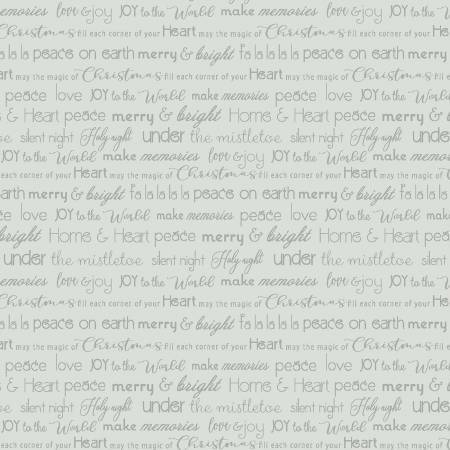 make memories love & joy JOY to the World make memories love & joy JOY to the World
Christmas fill each corner of your Heart may the magic of Christmas fill each corner of your
la la la peace on earth merry & bright fa la la la la peace on earth merry & bright
Heart may the magic of Christmas fill each corner of your Heart may the magic of Christmas
peace love JOY to the World make memories peace love JOY to the World
& Heart peace merry & bright Home & Heart peace merry & bright
silent night Holy night under the mistletoe silent night Holy night under
JOY to the World make memories love & joy JOY to the World make memories
each corner of your Heart may the magic of Christmas fill each corner of your Heart may the magic of
earth merry & bright fa la la la la peace on earth merry & bright fa la la la la
peace love JOY to the World make memories peace love JOY to the World make
bright Home & Heart peace merry & bright Home & Heart peace
under the mistletoe silent night Holy night under the mistletoe silent
memories love & joy JOY to the World make memories love & joy JOY to the World
Christmas fill each corner of your Heart may the magic of Christmas fill each corner of your
la la la peace on earth merry & bright fa la la la la peace on earth merry & bright
Heart may the magic of Christmas fill each corner of your Heart may the magic of Christmas
peace love JOY to the World make memories peace love JOY to the World
& Heart peace merry & bright Home & Heart peace merry & bright
silent night Holy night under the mistletoe silent night Holy night under
JOY to the World make memories love & joy JOY to the World make memories
each corner of your Heart may the magic of Christmas fill each corner of your Heart may the magic of